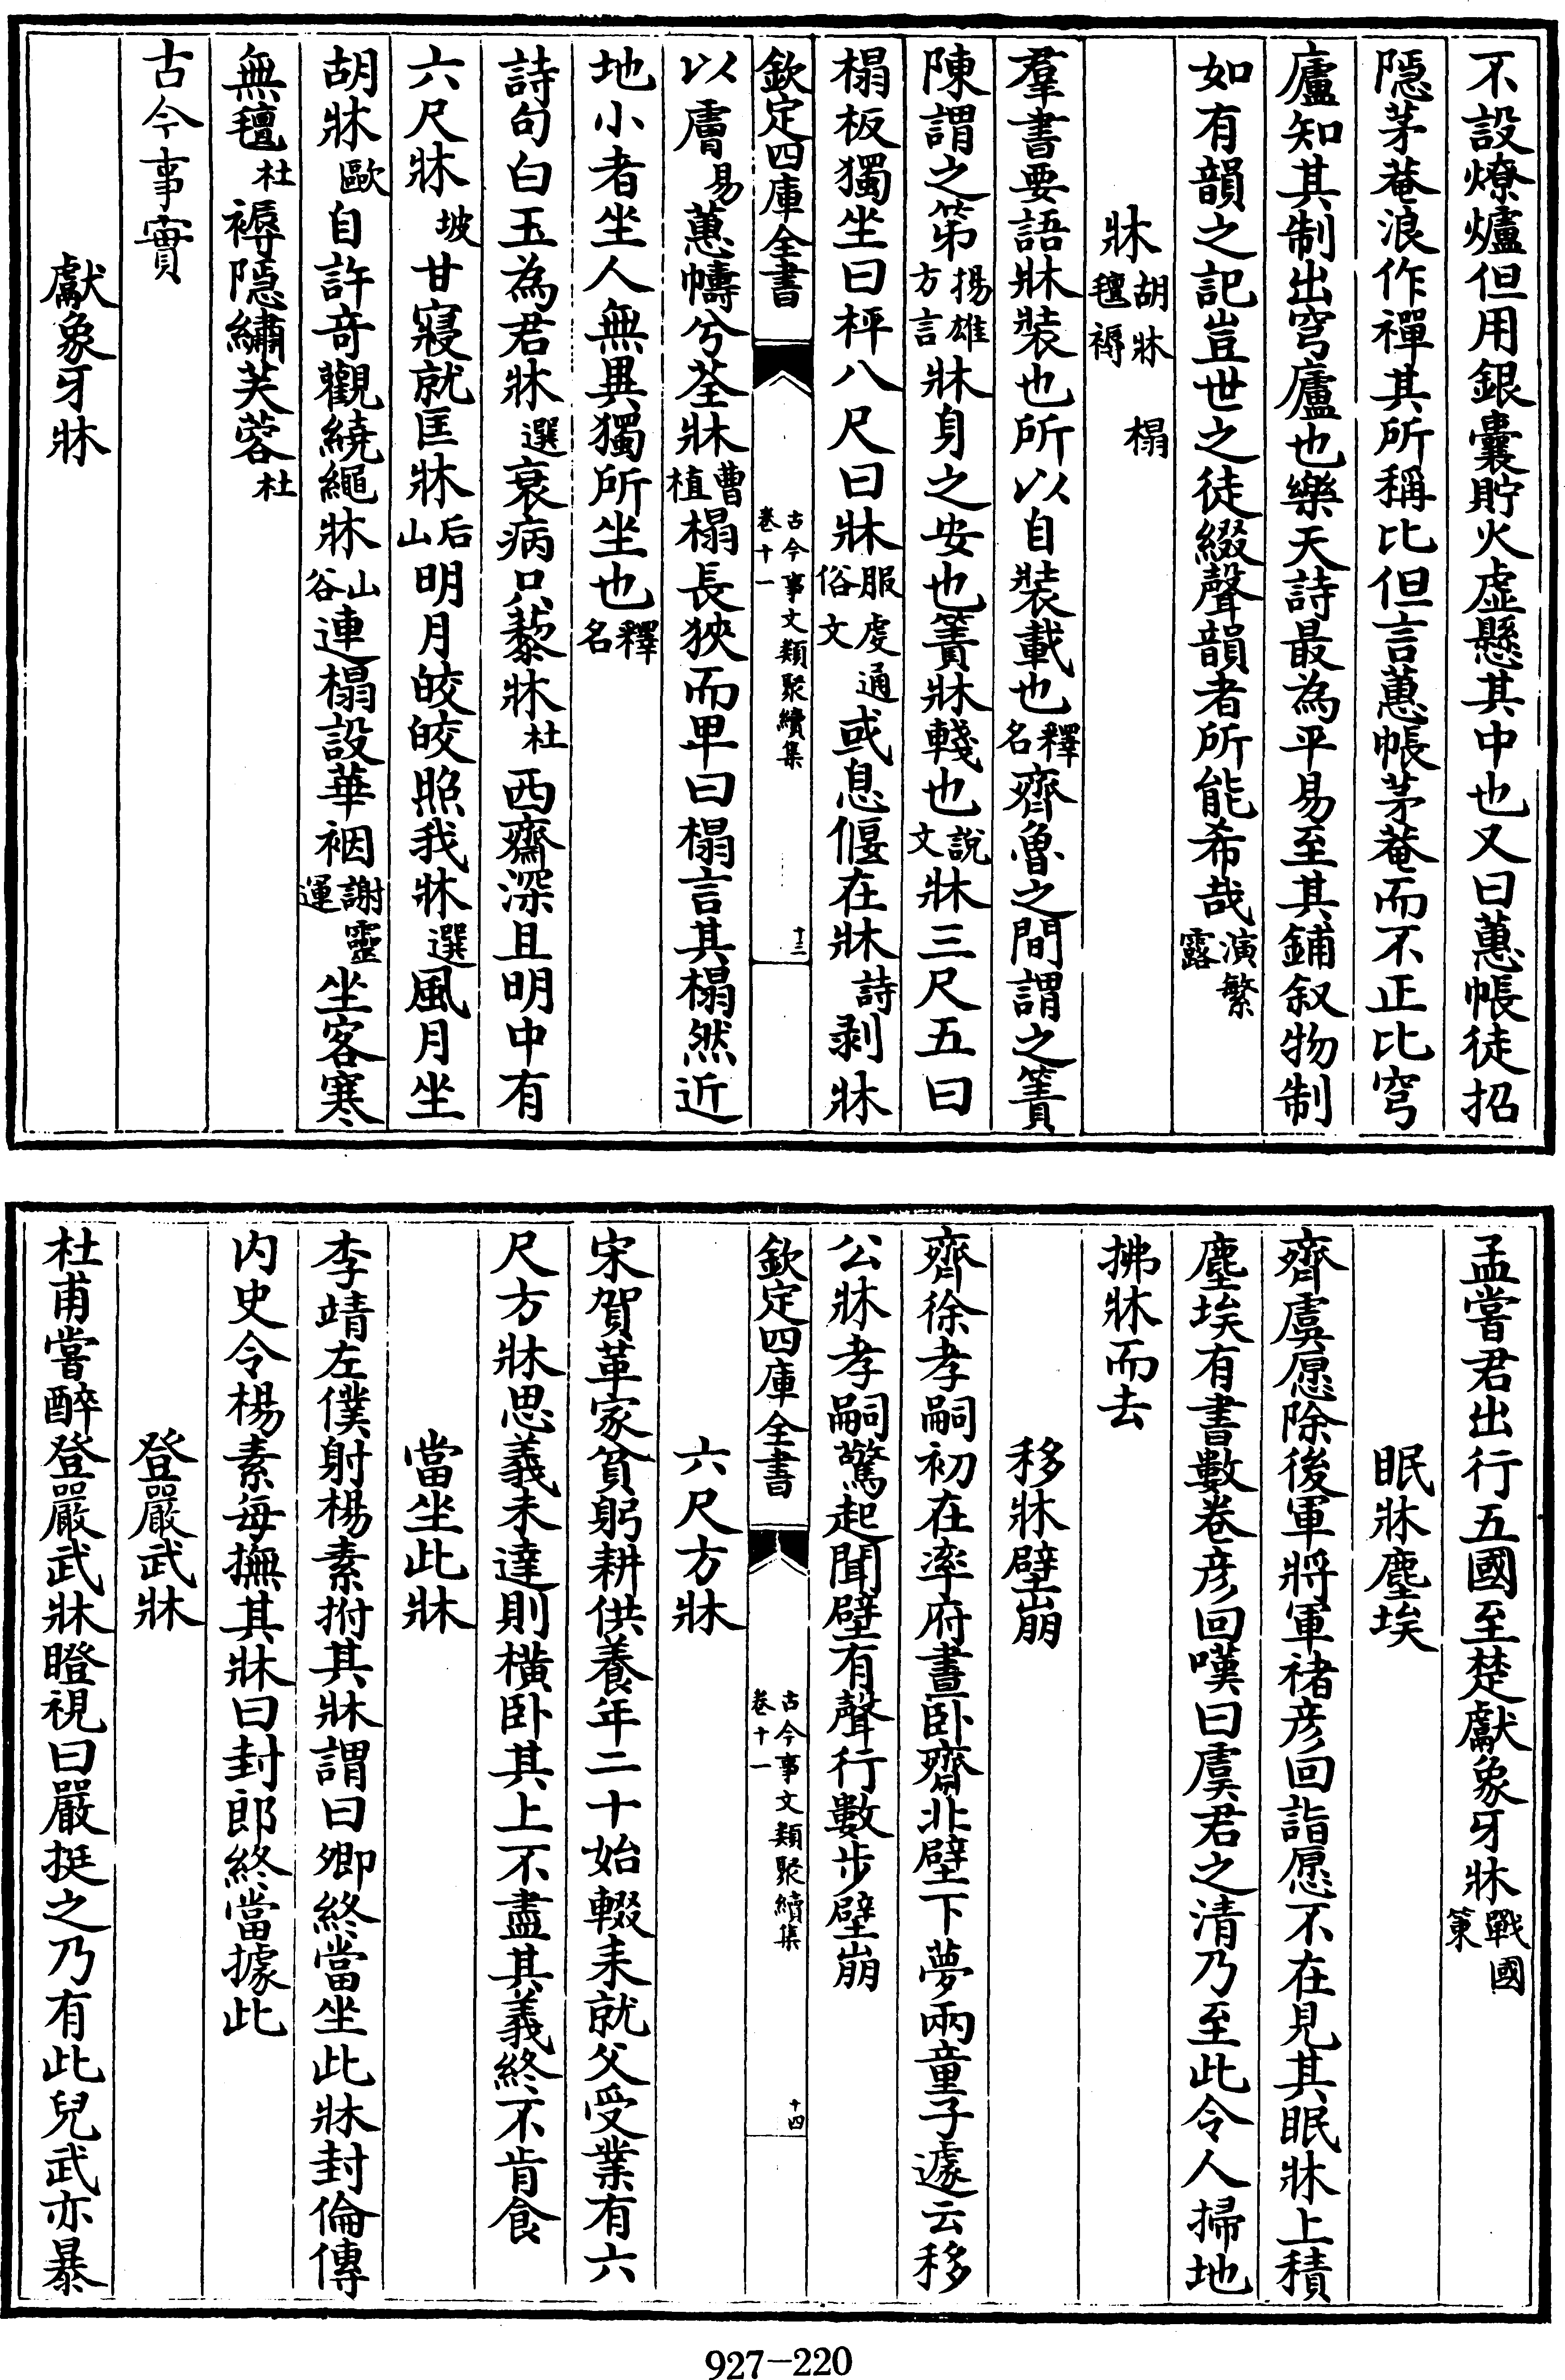 不設燎爐但用銀囊貯火虚懸其中也又曰蕙帳徒招
隠茅菴浪作禪其所稱比但言蕙帳茅菴而不正比穹
廬知其制出穹廬也樂天詩最為平易至其鋪叙物制
如有韻之記豈世之徒綴聲韻者所能希哉演繁露
牀胡牀 榻氊褥
羣書要語牀裝也所以自裝載也釋名齊魯之間謂之簀
陳謂之第揚雄方言牀身之安也簀牀輚也說文牀三尺五曰
榻板獨坐曰枰八尺曰牀服虔通俗文或息偃在牀詩剥牀
欽定四庫全書 古今事文類聚續集卷十一 十三
以膚易蕙幬兮荃牀曹植榻長狹而卑曰榻言其榻然近
地小者坐人無異獨所坐也釋名
詩句白玉為君牀選衰病只藜牀杜西齋深且明中有
六尺牀坡甘寢就匡牀后山明月皎皎照我牀選風月坐
胡牀歐自許竒觀繞繩牀山谷連榻設華裀謝靈運坐客寒
無氊杜褥隠繡芙蓉杜
古今事實
獻象牙牀
孟嘗君出行五國至楚獻象牙牀戰國策
眠牀塵埃
齊虞愿除後軍將軍禇彦回詣愿不在見其眠牀上積
塵埃有書數卷彦回嘆曰虞君之清乃至此令人掃地
拂牀而去
移牀壁崩
齊徐孝嗣初在率府晝卧齋北壁下夢兩童子遽云移
公牀孝嗣驚起聞壁有聲行數步壁崩
欽定四庫全書 古今事文類聚續集卷十一 十四
六尺方牀
宋賀革家貧躬耕供養年二十始輟耒就父受業有六
尺方牀思義未達則横卧其上不盡其義終不肯食
當坐此牀
李靖左僕射楊素拊其牀謂曰卿終當坐此牀封倫傳
内史令楊素每撫其牀曰封郎終當據此
登嚴武牀
杜甫嘗醉登嚴武牀瞪視曰嚴挺之乃有此兒武亦暴
927-220